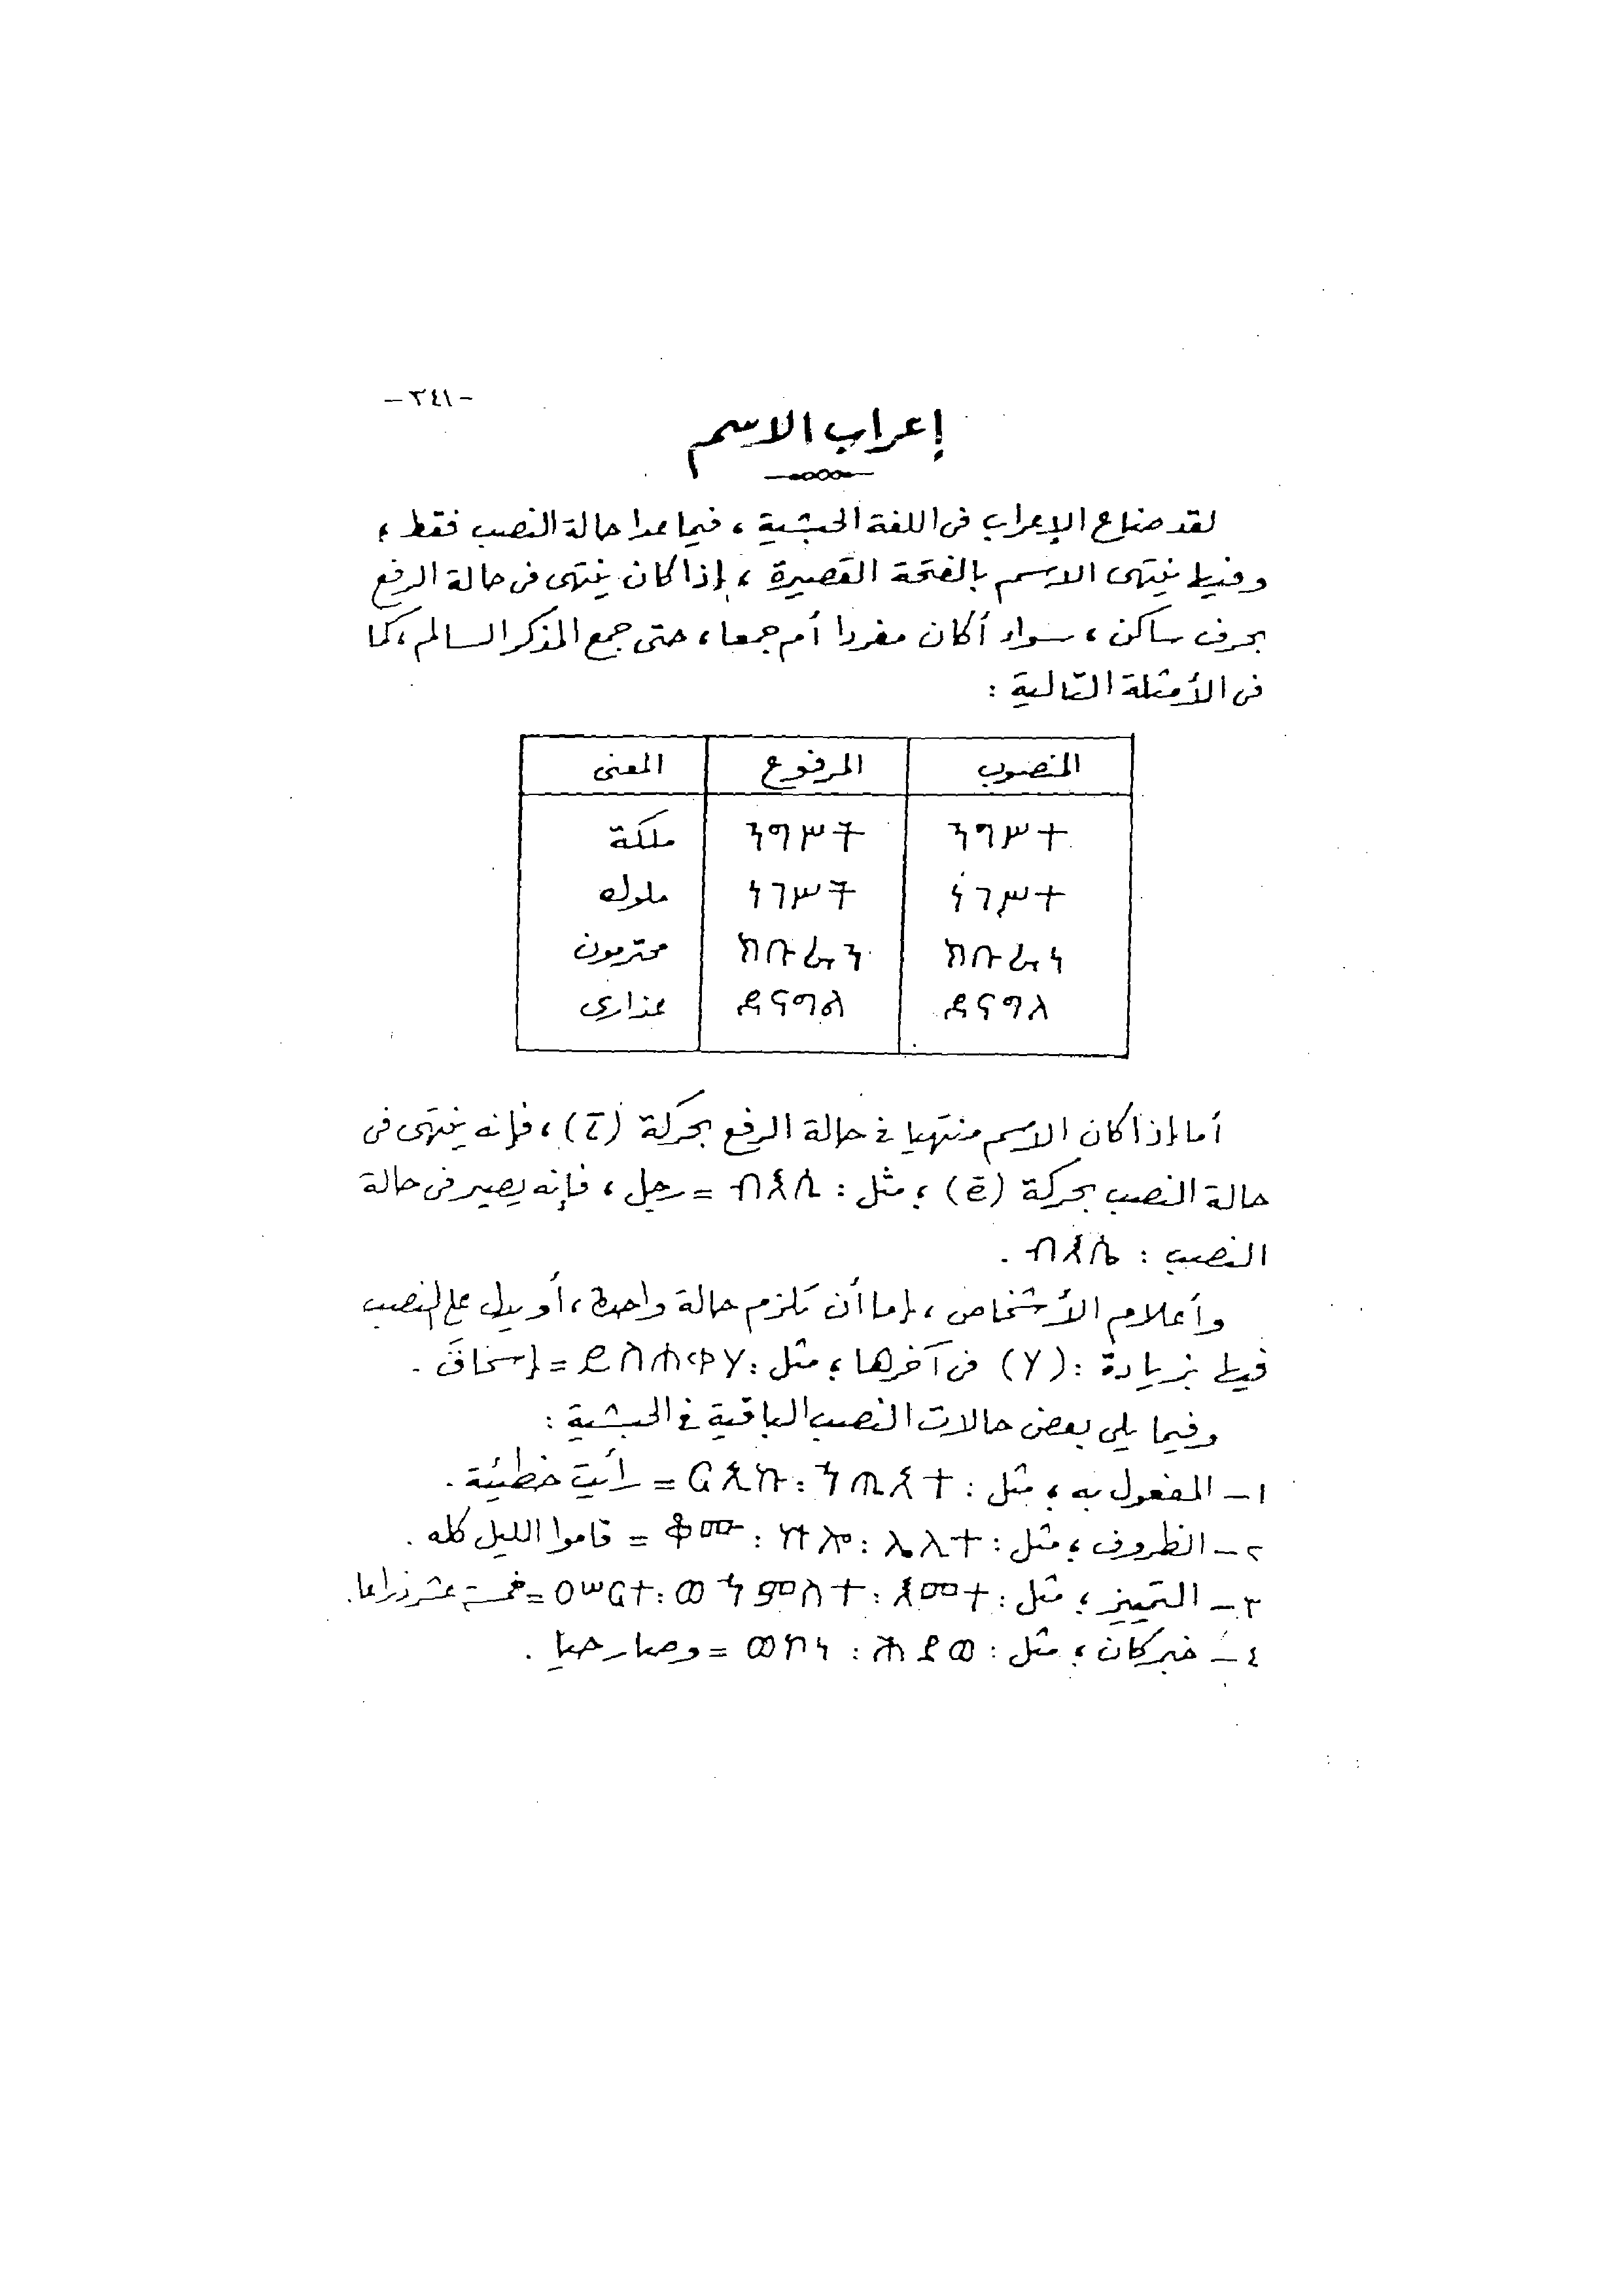 -٣٤١-
إعراب الاسم
لقد ضاع الإعراب فى اللغة الحبشية ، فيما عدا حالة النصب فقط ؛
وفيها ينتهى الاسم بالفتحة القصيرة ، إذا كان ينتهى فى حالة الرفع
بحرف ساكن ، سواء أكان مفردا أم جمعا ، حتى جمع المذكر السالم ، كما
فى الأمثلة التالية :
المنصوب المرفوع المعنى
ንግሥተ ንግሥት ملكة
ነገሥተ ነገሥት ملوك
ክቡራነ ክቡራን محترمون
ደናግለ ደናግል عذارى
أما إذا كان الاسم منتهيا فى حالة الرفع بحركة (ī) ، فإنه ينتهى فى
حالة النصب بحركة (ē) ؛ مثل : ብእሲ = رجل ، فإنه يصير فى حالة
النصب : ብእሴ .
وأعلام الأشخاص ، إما أن تلزم حالة واحدة ، أو يدل على النصب
فيها بزيادة : (ሃ) فى آخرها ؛ مثل : ይስሐቅሃ = إسحاقَ .
وفيما يلى بعض حالات النصب الباقية فى الحبشية :
١ــ المفعول به ؛ مثل : ርኢኩ : ኃጢአተ = رأيت خطيئة .
٢ــ الظروف ؛ مثل : ቆሙ : ኵሎ : ሌሊተ = قاموا الليل كله .
٣ــ التمييز ؛ مثل : ዐሠርተ : ወኃምስተ : እመተ = خمسة عشر ذراعا .
٤ــ خبر كان ؛ مثل : ወኮነ : ሕያወ = وصار حيا .